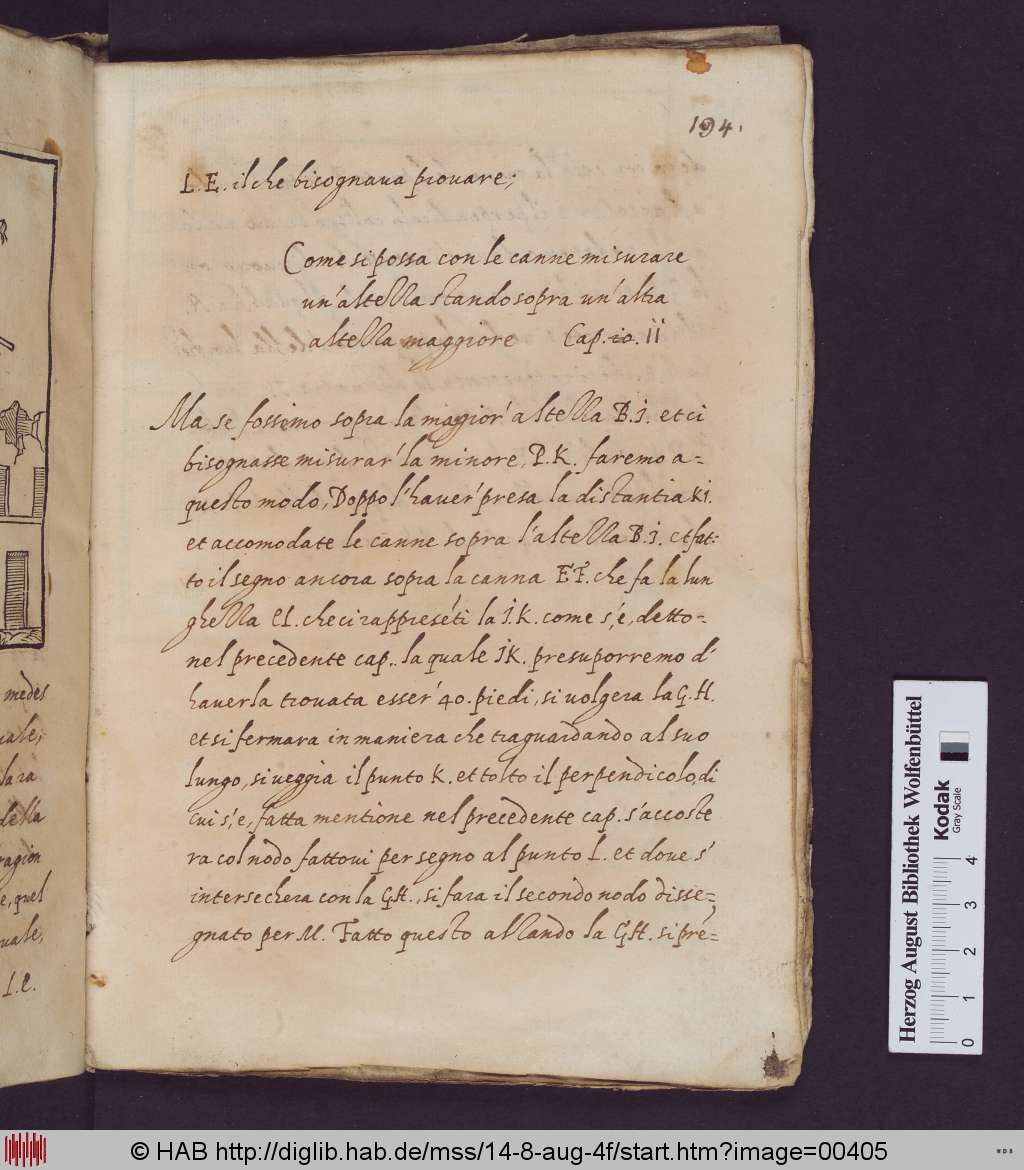 194.
L.E. il che bisognaua prouare;
Come si possa con le canne misurare
un'altezza stando sopra un'altra
altezza maggiore Cap. io. ii
Ma se fossimo sopra la magior' altezza B.I. et ci
bisognasse misurar' la minore, P.K. faremo a=
questo modo, Doppo l'hauer' presa la distantia KI.
et accomodate le canne sopra l'altezza B.I. et fat=
to il segno ancora sopra la canna EF. che fa la lun
ghezza EL. che ci rappreséti la I.K. come s'è, detto=
nel precedente cap.. la quale IK. presuporremo d'
hauerla trouata esser' 40. piedi, si volgera la G.H.
et si fermara in maniera che traguardando al suo
lungo, si veggia il punto K. et tolto il perpendicolo, di
cui s'è, fatta mentione nel precedente cap. s'accoste
ra col nodo fattoui per segno al punto L. et doue s'
intersechera con la GH., si fara il secondo nodo disse=
gnato per M. Fatto questo alzando la GH. si pré=
medes
uale,
la ra
della
ragion
e, quel
uale,
L.E.
Herzog August Bibliothek Wolfenbüttel
Kodak
Gray Scale
0 1 2 3 4
© HAB http://diglib.hab.de/mss/14-8-aug-4f/start.htm?image=00405